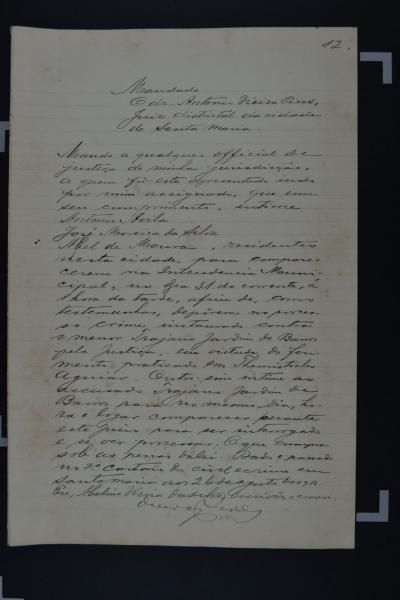 12.
Mandado
O dr. Antonio Vieira Pires,
Juiz districtal da cidade
de Santa Maria.
Mando a qualquer official de
justiça de minha jurisdicção,
a quem fôr este apresentado indo
por mim assignado, que em
seu cumprimento, intime
Antonio Avila
José Moreira da Silva
Abel de Moura, residentes
nesta cidade, para compare-
cerem na Intendencia Muni-
cipal, no dia 31 do corrente, á
1 hora da tarde, afim de, como
testemunhas, depôrem no proces-
so crime, instaurado contra
o menor Trajano Jardim de Barros
pela Justiça, em virtude do feri-
mento praticado em Themistocles
Aguiar. Outro sim intime ao
accusado Trajano Jardim de
Barros para no mesmo dia, ho-
ra e logar comparecer perante
este juizo para ser interrogado
e se ver processar. O que cumpra
sob as penas da lei. Dado e passado
no 2º Cartorio do civel e crime em
Santa Maria aos 26 de agosto de
Eu, Vieira da Silva, Escrivão escrevi.